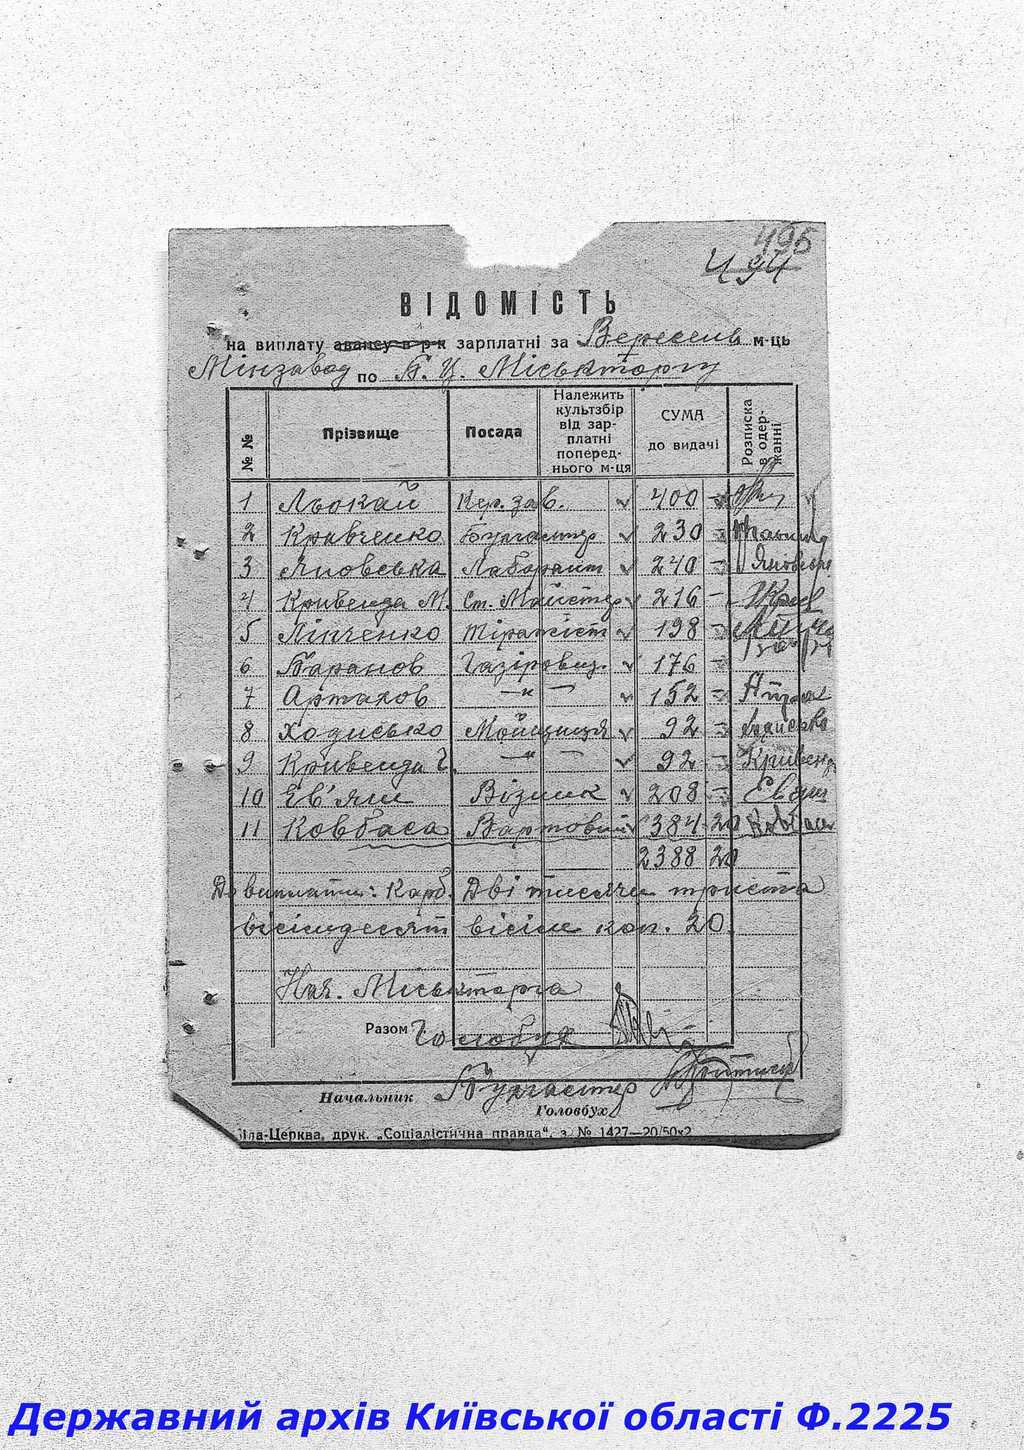 495
494
ВІДОМІСТЬ
на виплату авансу в р-к зарплатні за Вересень м-ць
Мінзавод по Б. Ц. Міськторгу
№ № Прізвище Посада Належить культзбір від зар- платні поперед- нього м-ця СУМА до видачі Розписка в одер- жанні
1 Льокай Кер. зав. 400 -
2 Кравченко Бухгалтер 230 -
3 Яновська Лаборант 240 - Яновська
4 Кривенда М. Ст. Майстер 216 -
5 Ліпченко Тіражіст 198 -
6 Баранов Газіровщ. 176 -
7 Артахов —"— 152 -
8 Ходисько Мойщиця 92 -
9 Кривенда Г. —"— 92 - Кривенд
10 Ев'яги Візник 208 -
11 Ковбаса Вартовий 384 20 Ковбаса
2388 20
До виплати: Карб. Дві тисячи триста
вісімдесят вісім коп. 20.
Нач. Міськторга
Разом Голобух
Бухгалтер
Начальник
Головбух
Біла-Церква, друк. „Соціалістична правда“, з. № 1427—20/50х2
Державний архів Київської області Ф.2225